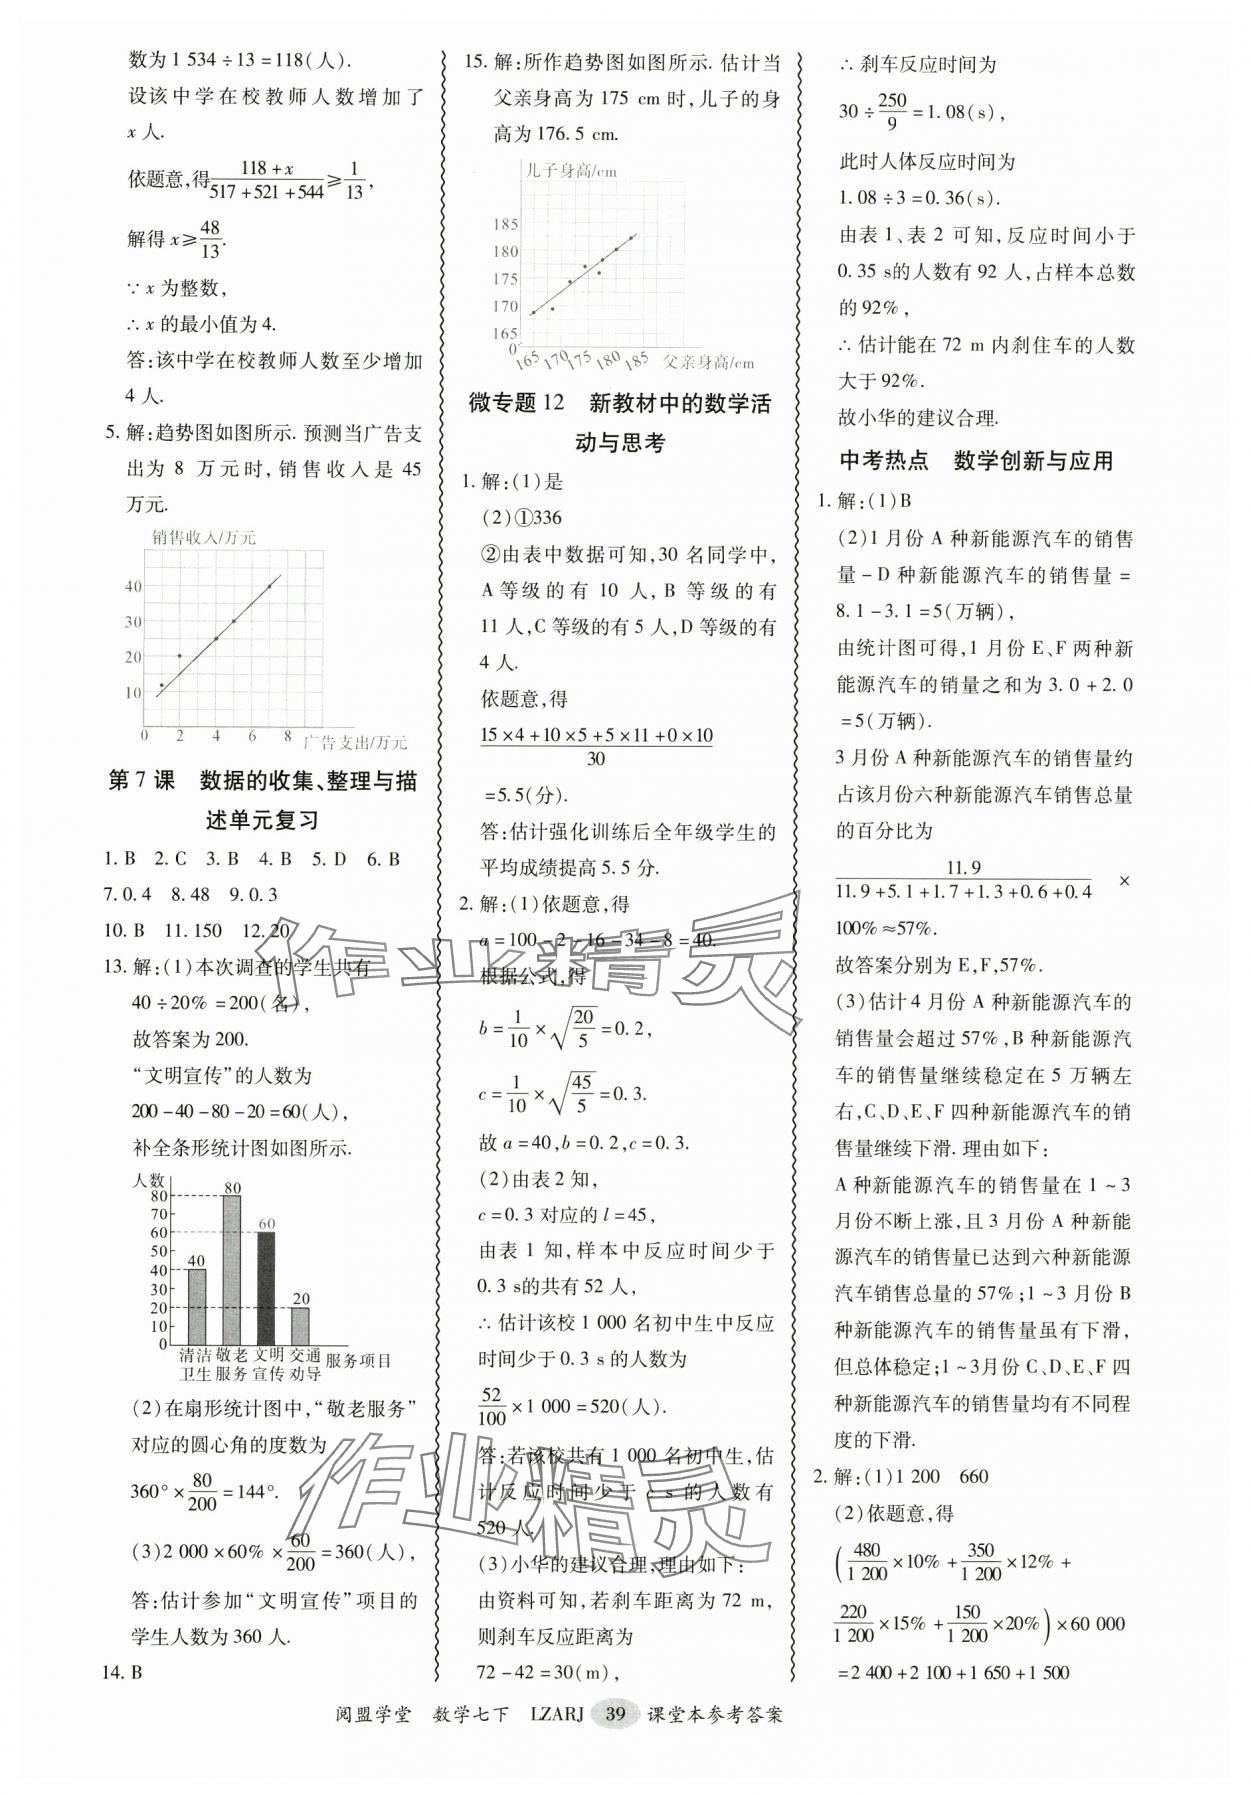 数为 1 534 ÷ 13 = 118(人).
设该中学在校教师人数增加了
x 人.
依题意,得 (118 + x)/(517 + 521 + 544) ≥ 1/13,
解得 x ≥ 48/13.
∵ x 为整数,
∴ x 的最小值为 4.
答:该中学在校教师人数至少增加
4 人.
5. 解:趋势图如图所示. 预测当广告支
出为 8 万元时,销售收入是 45
万元.
销售收入/万元
40
30
20
10
0 2 4 6 8 广告支出/万元
第 7 课 数据的收集、整理与描
述单元复习
1. B 2. C 3. B 4. B 5. D 6. B
7. 0. 4 8. 48 9. 0. 3
10. B 11. 150 12. 20
13. 解:(1)本次调查的学生共有
40 ÷ 20% = 200(名),
故答案为 200.
“文明宣传”的人数为
200 - 40 - 80 - 20 = 60(人),
补全条形统计图如图所示.
人数
80
70
60
50
40
30
20
10
0
40 80 60 20
清洁 敬老 文明 交通 服务项目
卫生 服务 宣传 劝导
(2)在扇形统计图中,“敬老服务”
对应的圆心角的度数为
360° × 80/200 = 144°.
(3)2 000 × 60% × 60/200 = 360(人),
答:估计参加“文明宣传”项目的
学生人数为 360 人.
14. B
15. 解:所作趋势图如图所示. 估计当
父亲身高为 175 cm 时,儿子的身
高为 176. 5 cm.
儿子身高/cm
185
180
175
170
165
0
165 170 175 180 185 父亲身高/cm
微专题 12 新教材中的数学活
动与思考
1. 解:(1)是
(2)①336
②由表中数据可知,30 名同学中,
A 等级的有 10 人,B 等级的有
11 人,C 等级的有 5 人,D 等级的有
4 人.
依题意,得
(15 × 4 + 10 × 5 + 5 × 11 + 0 × 10)/30
= 5. 5(分).
答:估计强化训练后全年级学生的
平均成绩提高 5. 5 分.
2. 解:(1)依题意,得
a = 100 - 2 - 16 - 34 - 8 = 40.
根据公式,得
b = 1/10 × √(20/5) = 0. 2,
c = 1/10 × √(45/5) = 0. 3.
故 a = 40,b = 0. 2,c = 0. 3.
(2)由表 2 知,
c = 0. 3 对应的 l = 45,
由表 1 知,样本中反应时间少于
0. 3 s的共有 52 人,
∴ 估计该校 1 000 名初中生中反应
时间少于 0. 3 s 的人数为
52/100 × 1 000 = 520(人).
答:若该校共有 1 000 名初中生,估
计反应时间少于 c s 的人数有
520 人.
(3)小华的建议合理,理由如下:
由资料可知,若刹车距离为 72 m,
则刹车反应距离为
72 - 42 = 30(m),
∴ 刹车反应时间为
30 ÷ 250/9 = 1. 08(s),
此时人体反应时间为
1. 08 ÷ 3 = 0. 36(s).
由表 1、表 2 可知,反应时间小于
0. 35 s的人数有 92 人,占样本总数
的 92%,
∴ 估计能在 72 m 内刹住车的人数
大于 92%.
故小华的建议合理.
中考热点 数学创新与应用
1. 解:(1)B
(2)1 月份 A 种新能源汽车的销售
量 - D 种新能源汽车的销售量 =
8. 1 - 3. 1 = 5(万辆),
由统计图可得,1 月份 E、F 两种新
能源汽车的销量之和为 3. 0 + 2. 0
= 5(万辆).
3 月份 A 种新能源汽车的销售量约
占该月份六种新能源汽车销售总量
的百分比为
11. 9/(11. 9 + 5. 1 + 1. 7 + 1. 3 + 0. 6 + 0. 4) ×
100% ≈ 57%.
故答案分别为 E,F,57%.
(3)估计 4 月份 A 种新能源汽车的
销售量会超过 57%,B 种新能源汽
车的销售量继续稳定在 5 万辆左
右,C、D、E、F 四种新能源汽车的销
售量继续下滑. 理由如下:
A 种新能源汽车的销售量在 1 ~ 3
月份不断上涨,且 3 月份 A 种新能
源汽车的销售量已达到六种新能源
汽车销售总量的 57%;1 ~ 3 月份 B
种新能源汽车的销售量虽有下滑,
但总体稳定;1 ~ 3月份 C、D、E、F 四
种新能源汽车的销售量均有不同程
度的下滑.
2. 解:(1)1 200 660
(2)依题意,得
(480/1 200 × 10% + 350/1 200 × 12% +
220/1 200 × 15% + 150/1 200 × 20%) × 60 000
= 2 400 + 2 100 + 1 650 + 1 500
阅盟学堂 数学七下 LZARJ 39 课堂本参考答案
作业精灵
作业精灵